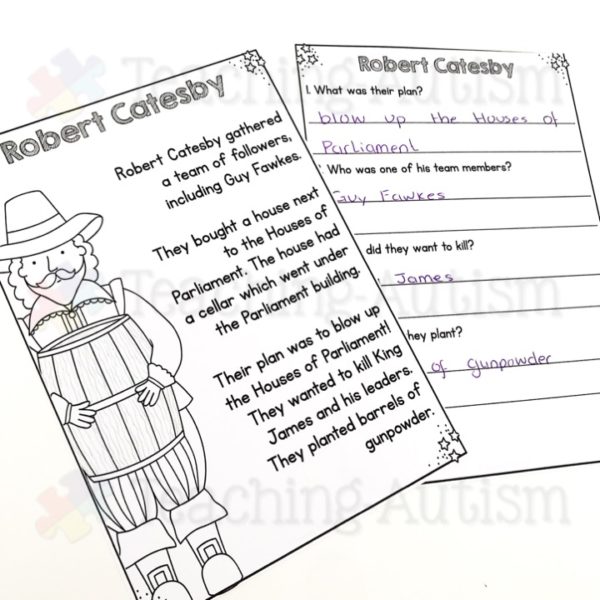 Robert Catesby
Robert Catesby gathered
a team of followers,
including Guy Fawkes.
They bought a house next
to the Houses of
Parliament. The house had
a cellar which went under
the Parliament building.
Their plan was to blow up
the Houses of Parliament!
They wanted to kill King
James and his leaders.
They planted barrels of
gunpowder.
Robert Catesby
1. What was their plan?
blow up the Houses of
Parliament
Who was one of his team members?
Guy Fawkes
did they want to kill?
James
they plant?
of gunpowder
Teaching Autism
Teaching Autism
Teaching Autism